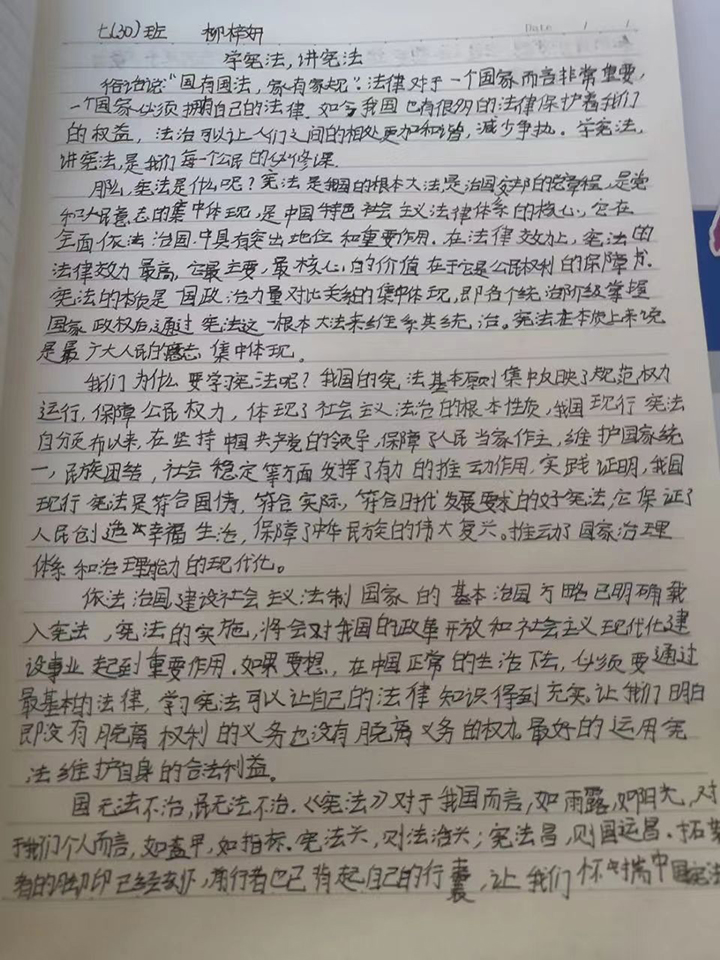 七(30)班 柳梓妍 Date / /
学宪法,讲宪法
俗话说:“国有国法,家有家规”.法律对于一个国家而言非常重要,
一个国家必须拥有自己的法律.如今我国也有很多的法律保护着我们
的权益,法治可以让人们之间的相处更加和谐,减少争执.学宪法,
讲宪法,是我们每一个公民的必修课.
那么,宪法是什么呢?宪法是我国的根本大法,是治国安邦的总章程,是党
和人民意志的集中体现,是中国特色社会主义法律体系的核心,它在
全面依法治国中具有突出地位和重要作用.在法律效力上,宪法的
法律效力最高,它最主要,最核心的价值在于它是公民权利的保障书.
宪法的本质是一国政治力量对比关系的集中体现,即各个统治阶级掌握
国家政权后通过宪法这一根本大法来维系其统治。宪法在本质上来说
是最广大人民的意志集中体现.
我们为什么要学习宪法呢?我国的宪法基本原则集中反映了规范权力
运行,保障公民权力,体现了社会主义法治的根本性质,我国现行宪法
自颁布以来,在坚持中国共产党的领导,保障了人民当家作主,维护国家统
一,民族团结,社会稳定等方面发挥了有力的推动作用,实践证明,我国
现行宪法是符合国情,符合实际,符合时代发展要求的好宪法,它保证了
人民创造幸福生活,保障了中华民族的伟大复兴。推动了国家治理
体系和治理能力的现代化。
依法治国建设社会主义法制国家的基本治国方略已明确载
入宪法,宪法的实施,将会对我国的改革开放和社会主义现代化建
设事业起到重要作用.如果要想,在中国正常的生活下去,必须要通过
最基本的法律,学习宪法可以让自己的法律知识得到充实.让我们明白
即没有脱离权利的义务也没有脱离义务的权力。最好的运用宪
法维护自身的合法利益。
国无法不治,民无法不治.《宪法》对于我国而言,如雨露,如阳光,对
于我们个人而言,如盔甲,如指标.宪法兴,则法治兴;宪法昌,则国运昌.拓荒
者的脚印已经,前行者也已背起自己的行囊,让我们怀揣中国宪法